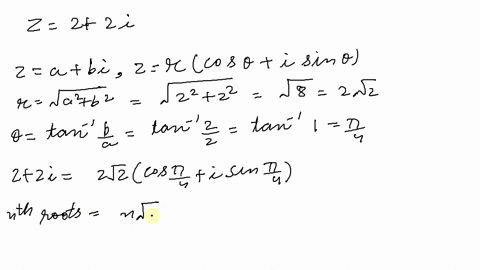 Z = 2+2i
z = a+bi, z = r(cosθ + i sinθ)
r = √a²+b² = √2²+2² = √8 = 2√2
θ = tan⁻¹ b/a = tan⁻¹ 2/2 = tan⁻¹ 1 = π/4
2+2i = 2√2 (cos π/4 + i sin π/4)
nth roots = n√